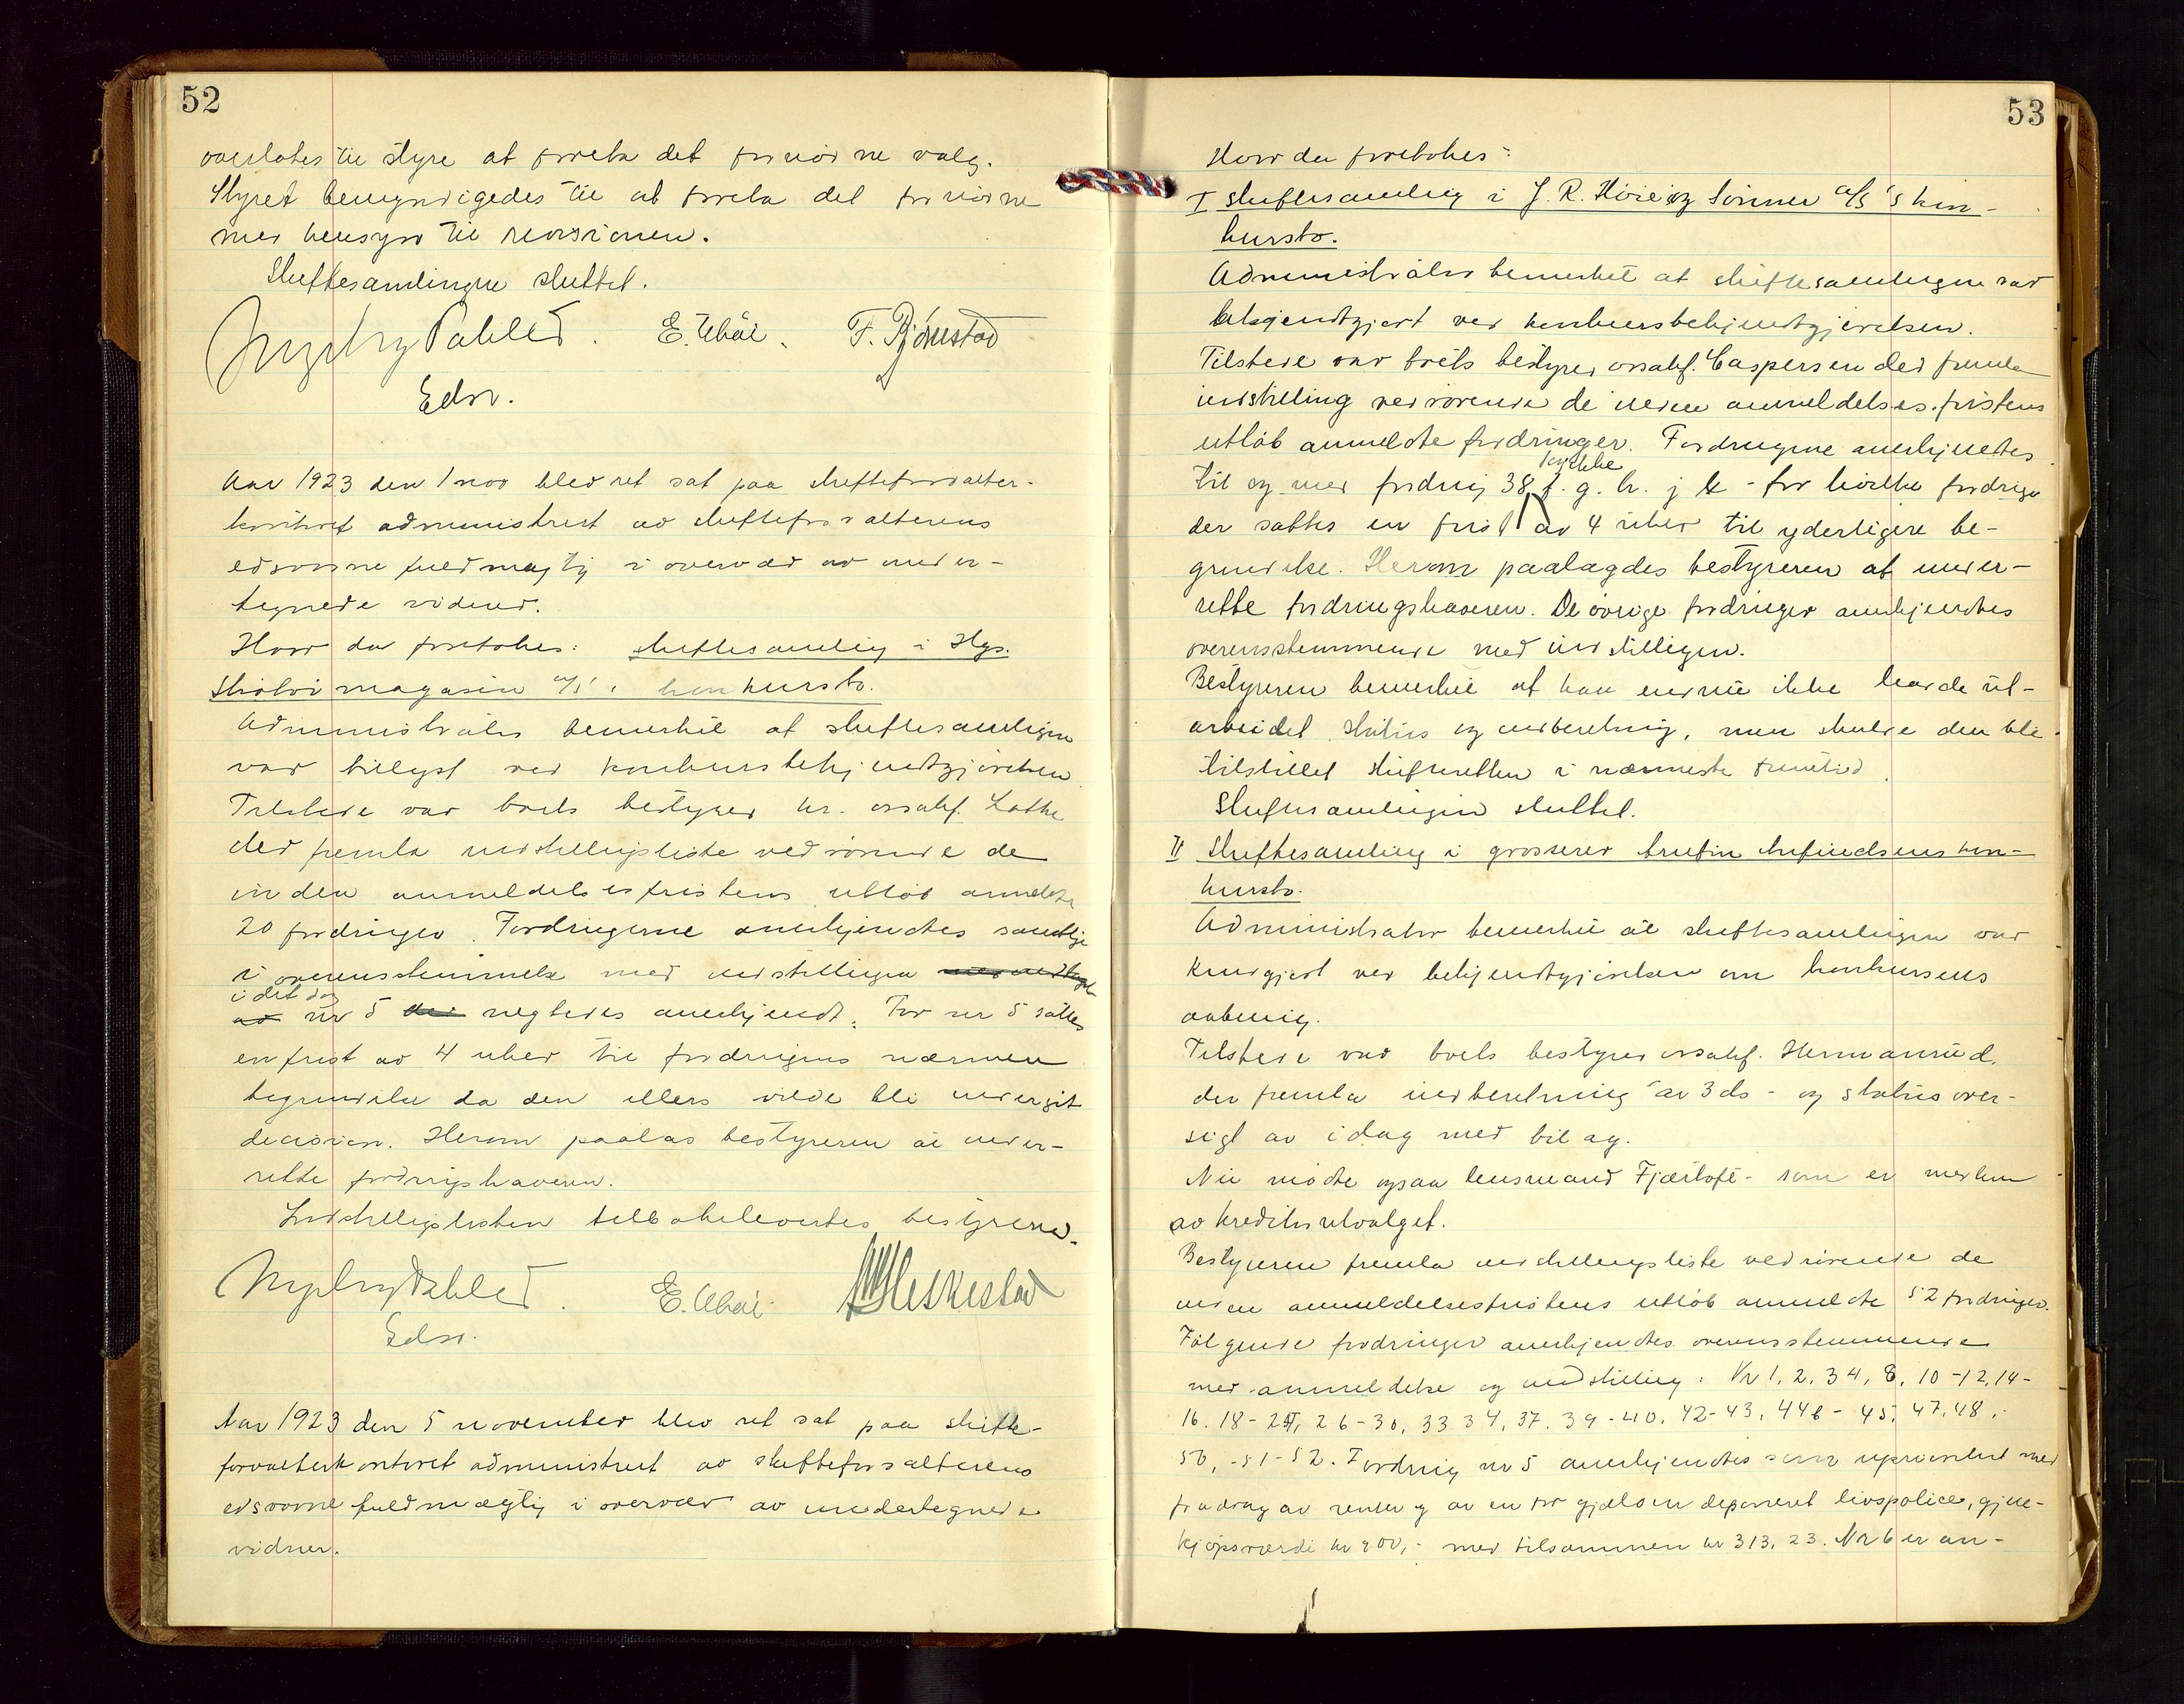 52
overlates til styre at foreta det fornødne valg.
Styret bemyndigedes til at foreta det fornødne
med hensyn til revisionen.
Skiftesamlingen sluttet.
E. Uhde. F. Bjørnstad
Edsv.
Aar 1923 den 1 nov blev ret sat paa skifteforvalter-
kontoret administrert av skifteforvalterens
edsvorne fuldmægtig i overvær av under-
tegnede vidner.
Hvor da foretokes: skiftesamling i Hgs.
skotøimagasin a/s's konkursbo.
Administrator bemerket at skiftesamlingen
var billyst ved konkursbekjendtgjørelsen
Tilstede var boets bestyrer hr. ovsakf. Lothe
der fremla indstillingsliste vedrørende de
inden anmeldelsesfristens utløb anmeldte
20 fordringer. Fordringerne anerkjendtes samtlige
i overensstemmelse med indstillingen
i det dog
av nr 5 der negtedes anerkjendt. For nr 5 sattes
en frist av 4 uker til fordringens nærmere
begrundelse da den ellers vilde bli undergit
decision. Herom paalas bestyreren at under-
rette fordringshaveren.
Indstillingslisten tilbakeleveres bestyreren.
E. Uhde
Edsv.
Aar 1923 den 5 november blev ret sat paa skifte-
forvalterkontoret administrert av skifteforvalterens
edsvorne fuldmægtig i overvær av undertegnede
vidner.
53
Hvor da foretokes:
I skiftesamling i J. R. Høie og Sønner a/s's kon-
kursbo.
Administrator bemerket at skiftesamlingen var
bekjendtgjort ved konkursbekjendtgjørelsen.
Tilstede var boets bestyrer ovsakf. Caspersen der fremla
indstilling vedrørende de inden anmeldelsesfristens
utløb anmeldte fordringer. Fordringerne anerkjendtes
til og med fordring 38 f. g. h. j k - for hvilke fordringer
der sattes en frist av 4 uker til yderligere be-
grundelse. Herom paalagdes bestyreren at under-
rette fordringshaveren. De øvrige fordringer anerkjendtes
overensstemmende med indstillingen.
Bestyreren bemerket at han endnu ikke havde ut-
arbeidet status og indberetning, men skulde den bli
tilstillet skifteretten i nærmeste fremtid.
Skiftesamlingen sluttet.
II Skiftesamling i grosserer konkurs-
kursbo.
Administrator bemerket at skiftesamlingen var
kundgjort ved bekjendtgjørelsen om konkursens
aabning.
Tilstede var boets bestyrer ovsakf. Hermansrud,
der fremla indberetning av 3 ds - og statusover-
sigt av idag med bilag.
Nu møtte ogsaa lensmand Fjærtoft - som er medlem
av kreditorutvalget.
Bestyreren fremla indstillingsliste vedrørende de
inden anmeldelsesfristens utløb anmeldte 52 fordringer.
Følgende fordringer anerkjendtes overensstemmende
med anmeldelse og indstilling: Nr 1, 2, 3 4, 8, 10 - 12, 14 -
16. 18 - 25, 26 - 30, 33 34, 37. 39 - 40, 42 - 43, 44b - 45, 47, 48, -
50, - 51 - 52. Fordring nr 5 anerkjendtes som uprioritert med
fradrag av renter og av en for gjælden deponeret livspolice, gjen-
kjøpsværdi kr 200, - med tilsammen kr 313, 23. Nr 6 er an-